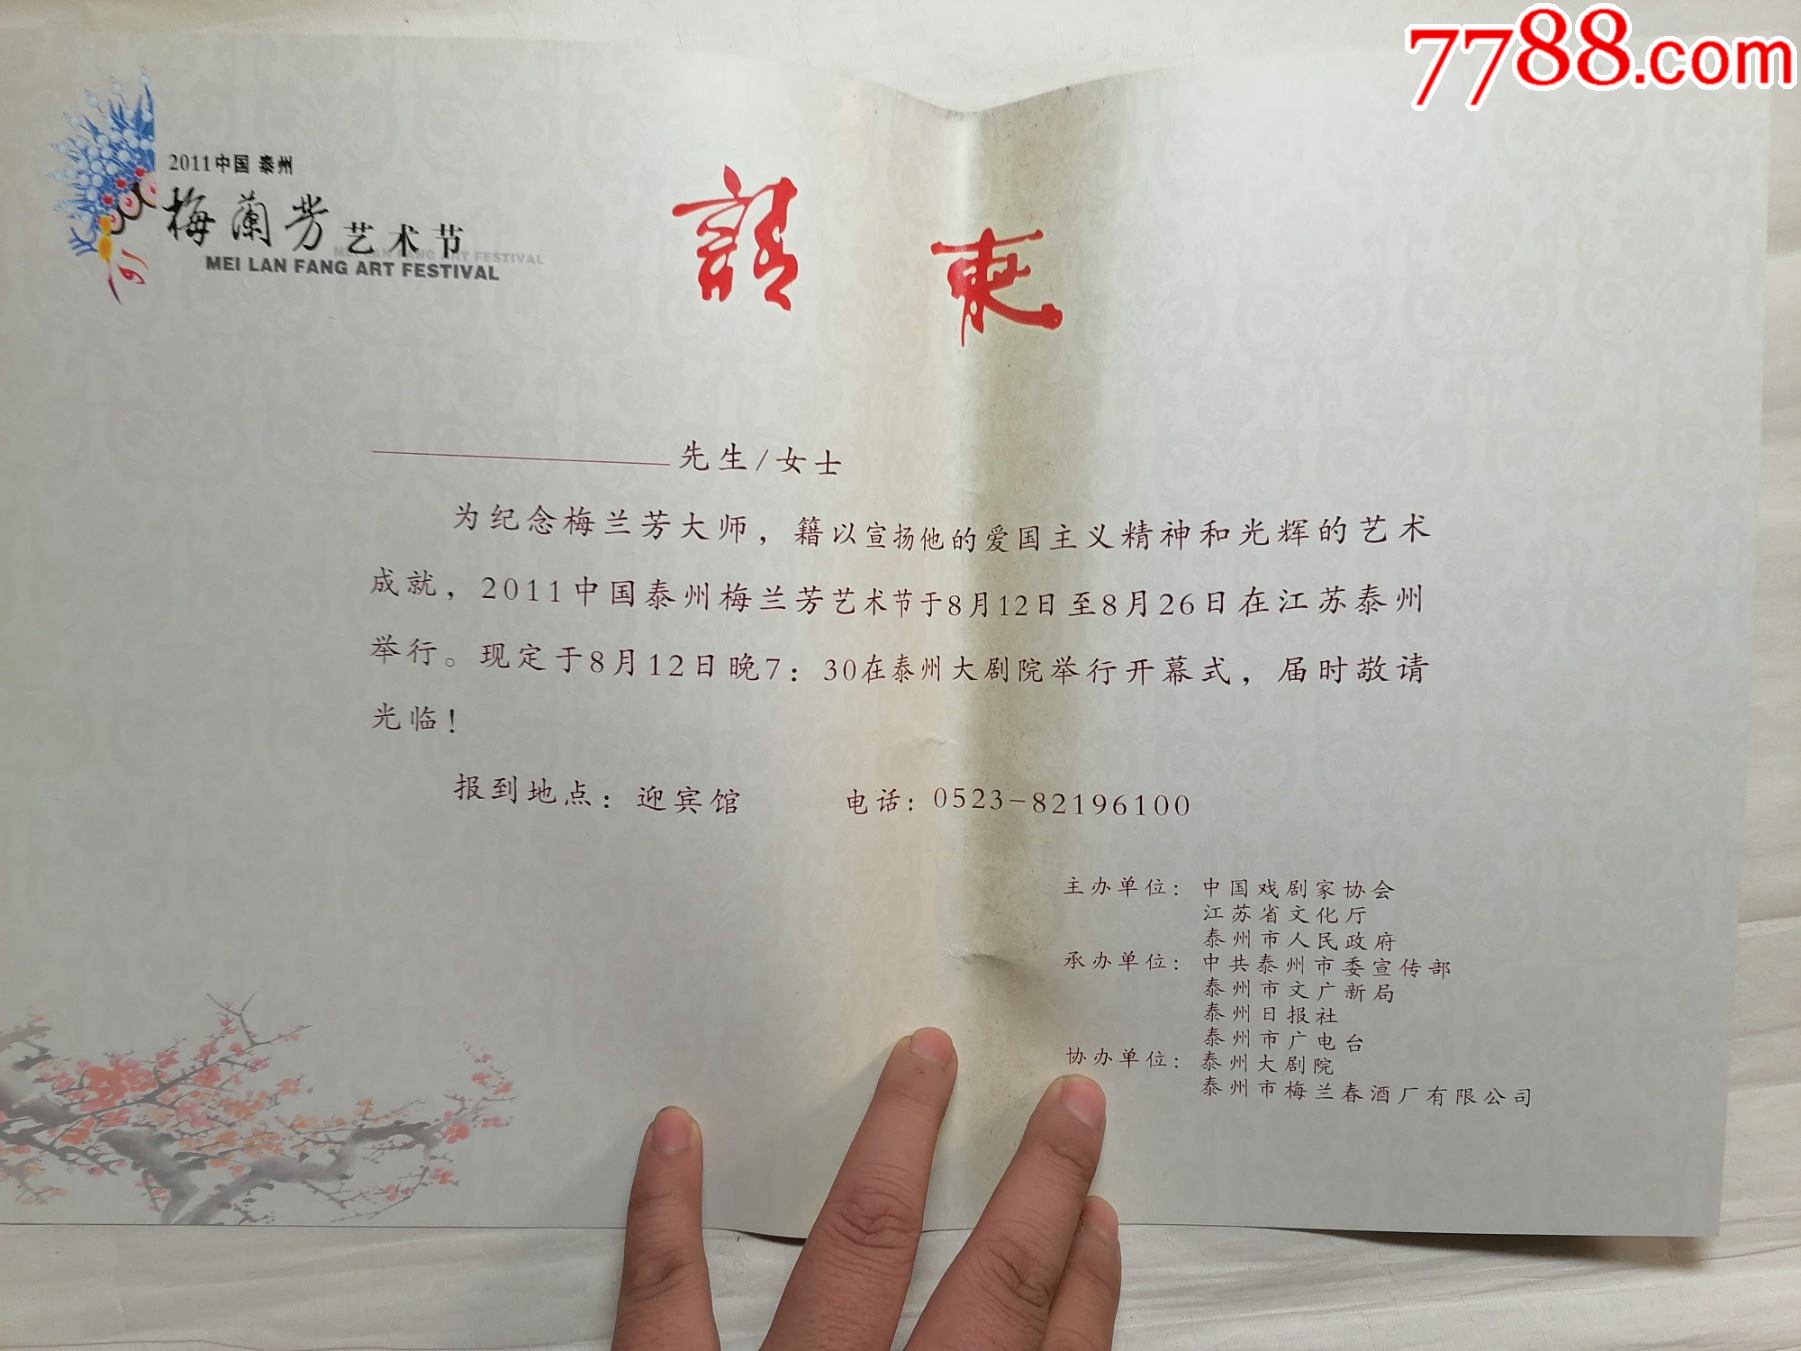 7788.com
2011中国 泰州
梅蘭芳艺术节
MEI LAN FANG ART FESTIVAL
請柬
先生/女士
为纪念梅兰芳大师，籍以宣扬他的爱国主义精神和光辉的艺术
成就，2011中国泰州梅兰芳艺术节于8月12日至8月26日在江苏泰州
举行。现定于8月12日晚7：30在泰州大剧院举行开幕式，届时敬请
光临！
报到地点：迎宾馆 电话：0523-82196100
主办单位：中国戏剧家协会
江苏省文化厅
泰州市人民政府
承办单位：中共泰州市委宣传部
泰州市文广新局
泰州日报社
泰州市广电台
协办单位：泰州大剧院
泰州市梅兰春酒厂有限公司